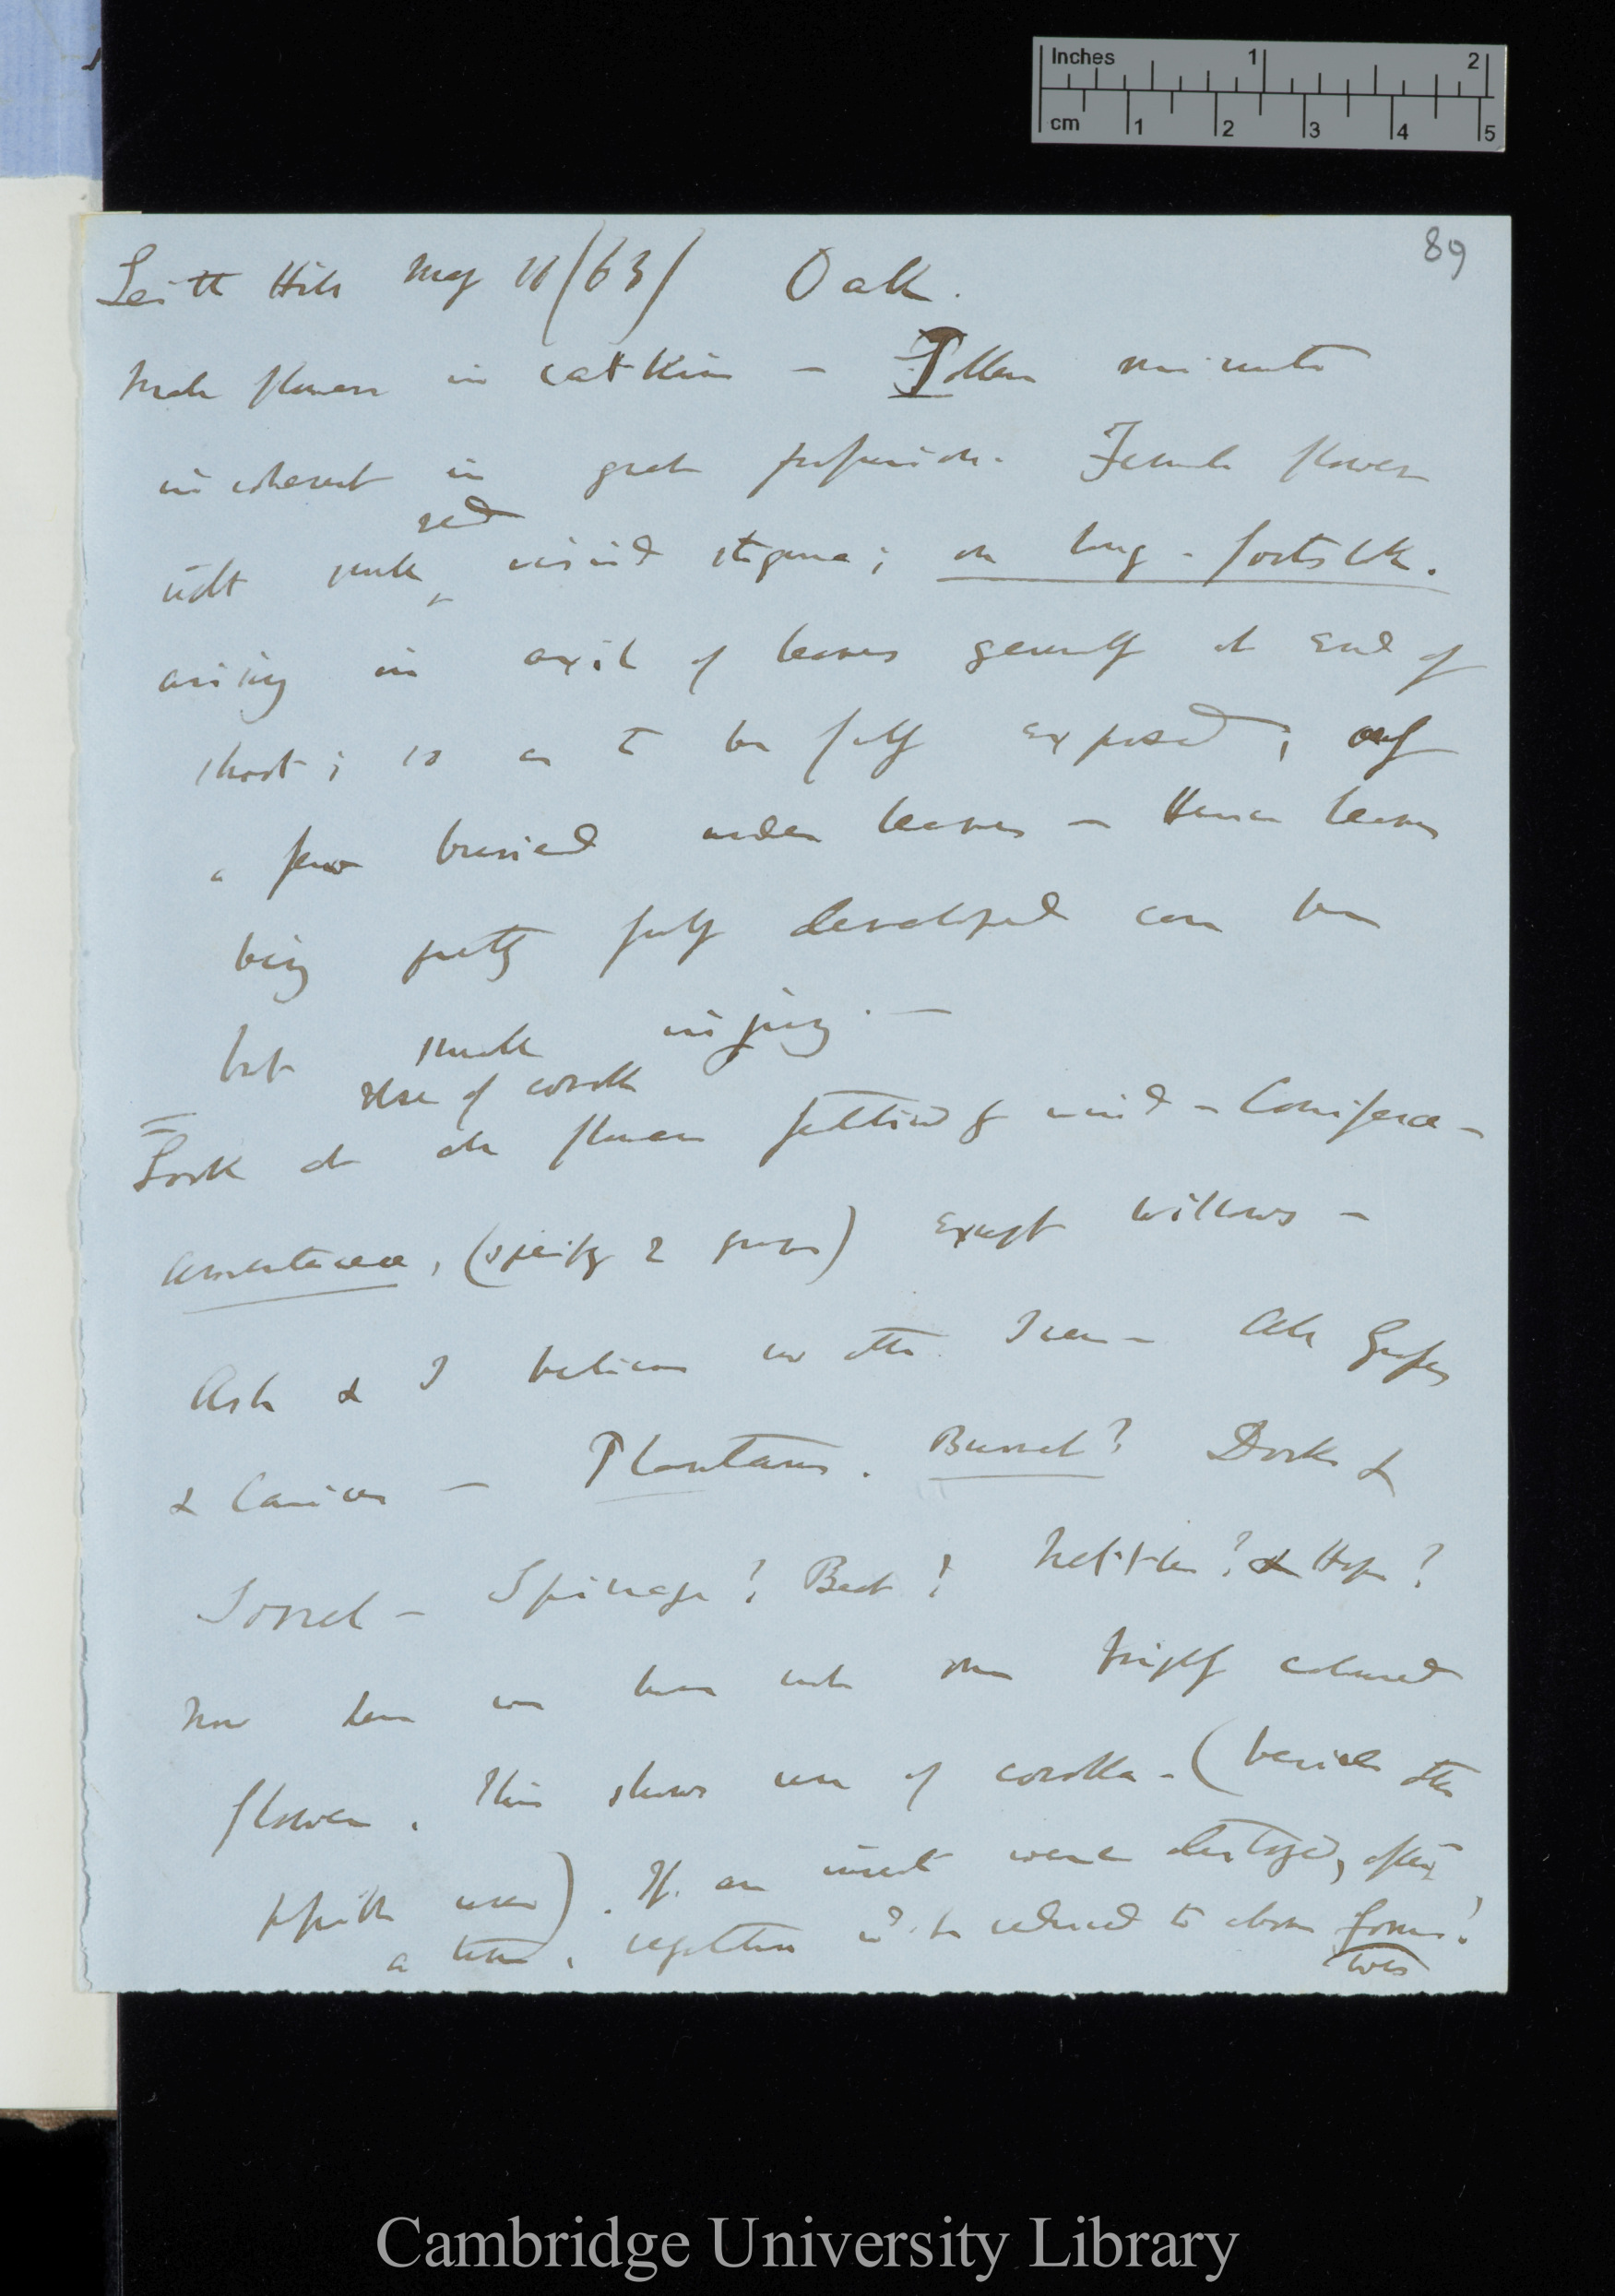 Inches 1 2
cm 1 2 3 4 5
89
Leith Hill May 11/63/ Oak.
Male flowers in catkins — Pollen minute
incoherent in great profusion. Female flowers
red
with small viscid stigma; on long-footstalk.
arising in axil of leaves generally at end of
shoot; so as to be fully exposed; only
a few buried under leaves — Hence leaves
being pretty fully developed can be
but small injury. —
Use of corolla
Look at all flowers fertilised by wind — Coniferæ —
Amentaceæ, (specify 2 groups) except willows —
Ash & I believe no other Trees — All Grasses
& Carices — Plantains. Burnet? Docks &
Sorrel — Spinage? Beet? Nettles? & Hops?
Now here we have not one brightly coloured
flower. This shows use of corolla — (besides other
possible uses). If all insects were destroyed, after
a time, vegetation wd. be reduced to above forms?